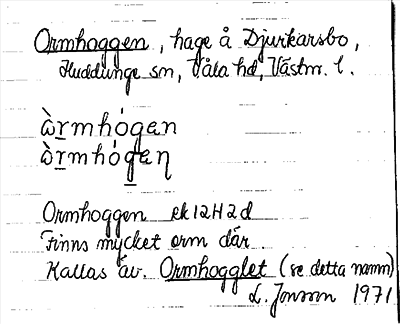 Ormhoggen, hage å Djurkarsbo,
Huddunge sn, Våla hd, Västm. l.
ὼr̲mhó̩gɐn
ὼr̲mhó̩g̲ɐη
Ormhoggen ek 12H2d
Finns mycket orm där.
Kallas äv. Ormhogglet (se detta namn)
L. Jonsson 1971